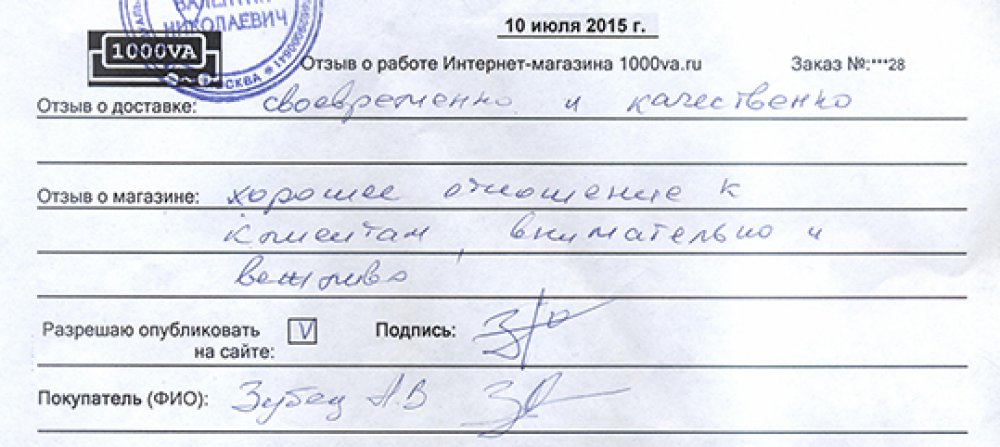 ВАЛЕНТИН
НИКОЛАЕВИЧ
МОСКВА
1000VA
10 июля 2015 г.
Отзыв о работе Интернет-магазина 1000va.ru Заказ №:***28
Отзыв о доставке: своевременно и качественно
Отзыв о магазине: хорошее отношение к
клиентам, внимательно и
вежливо
Разрешаю опубликовать V Подпись:
на сайте:
Покупатель (ФИО): Зубец А.В